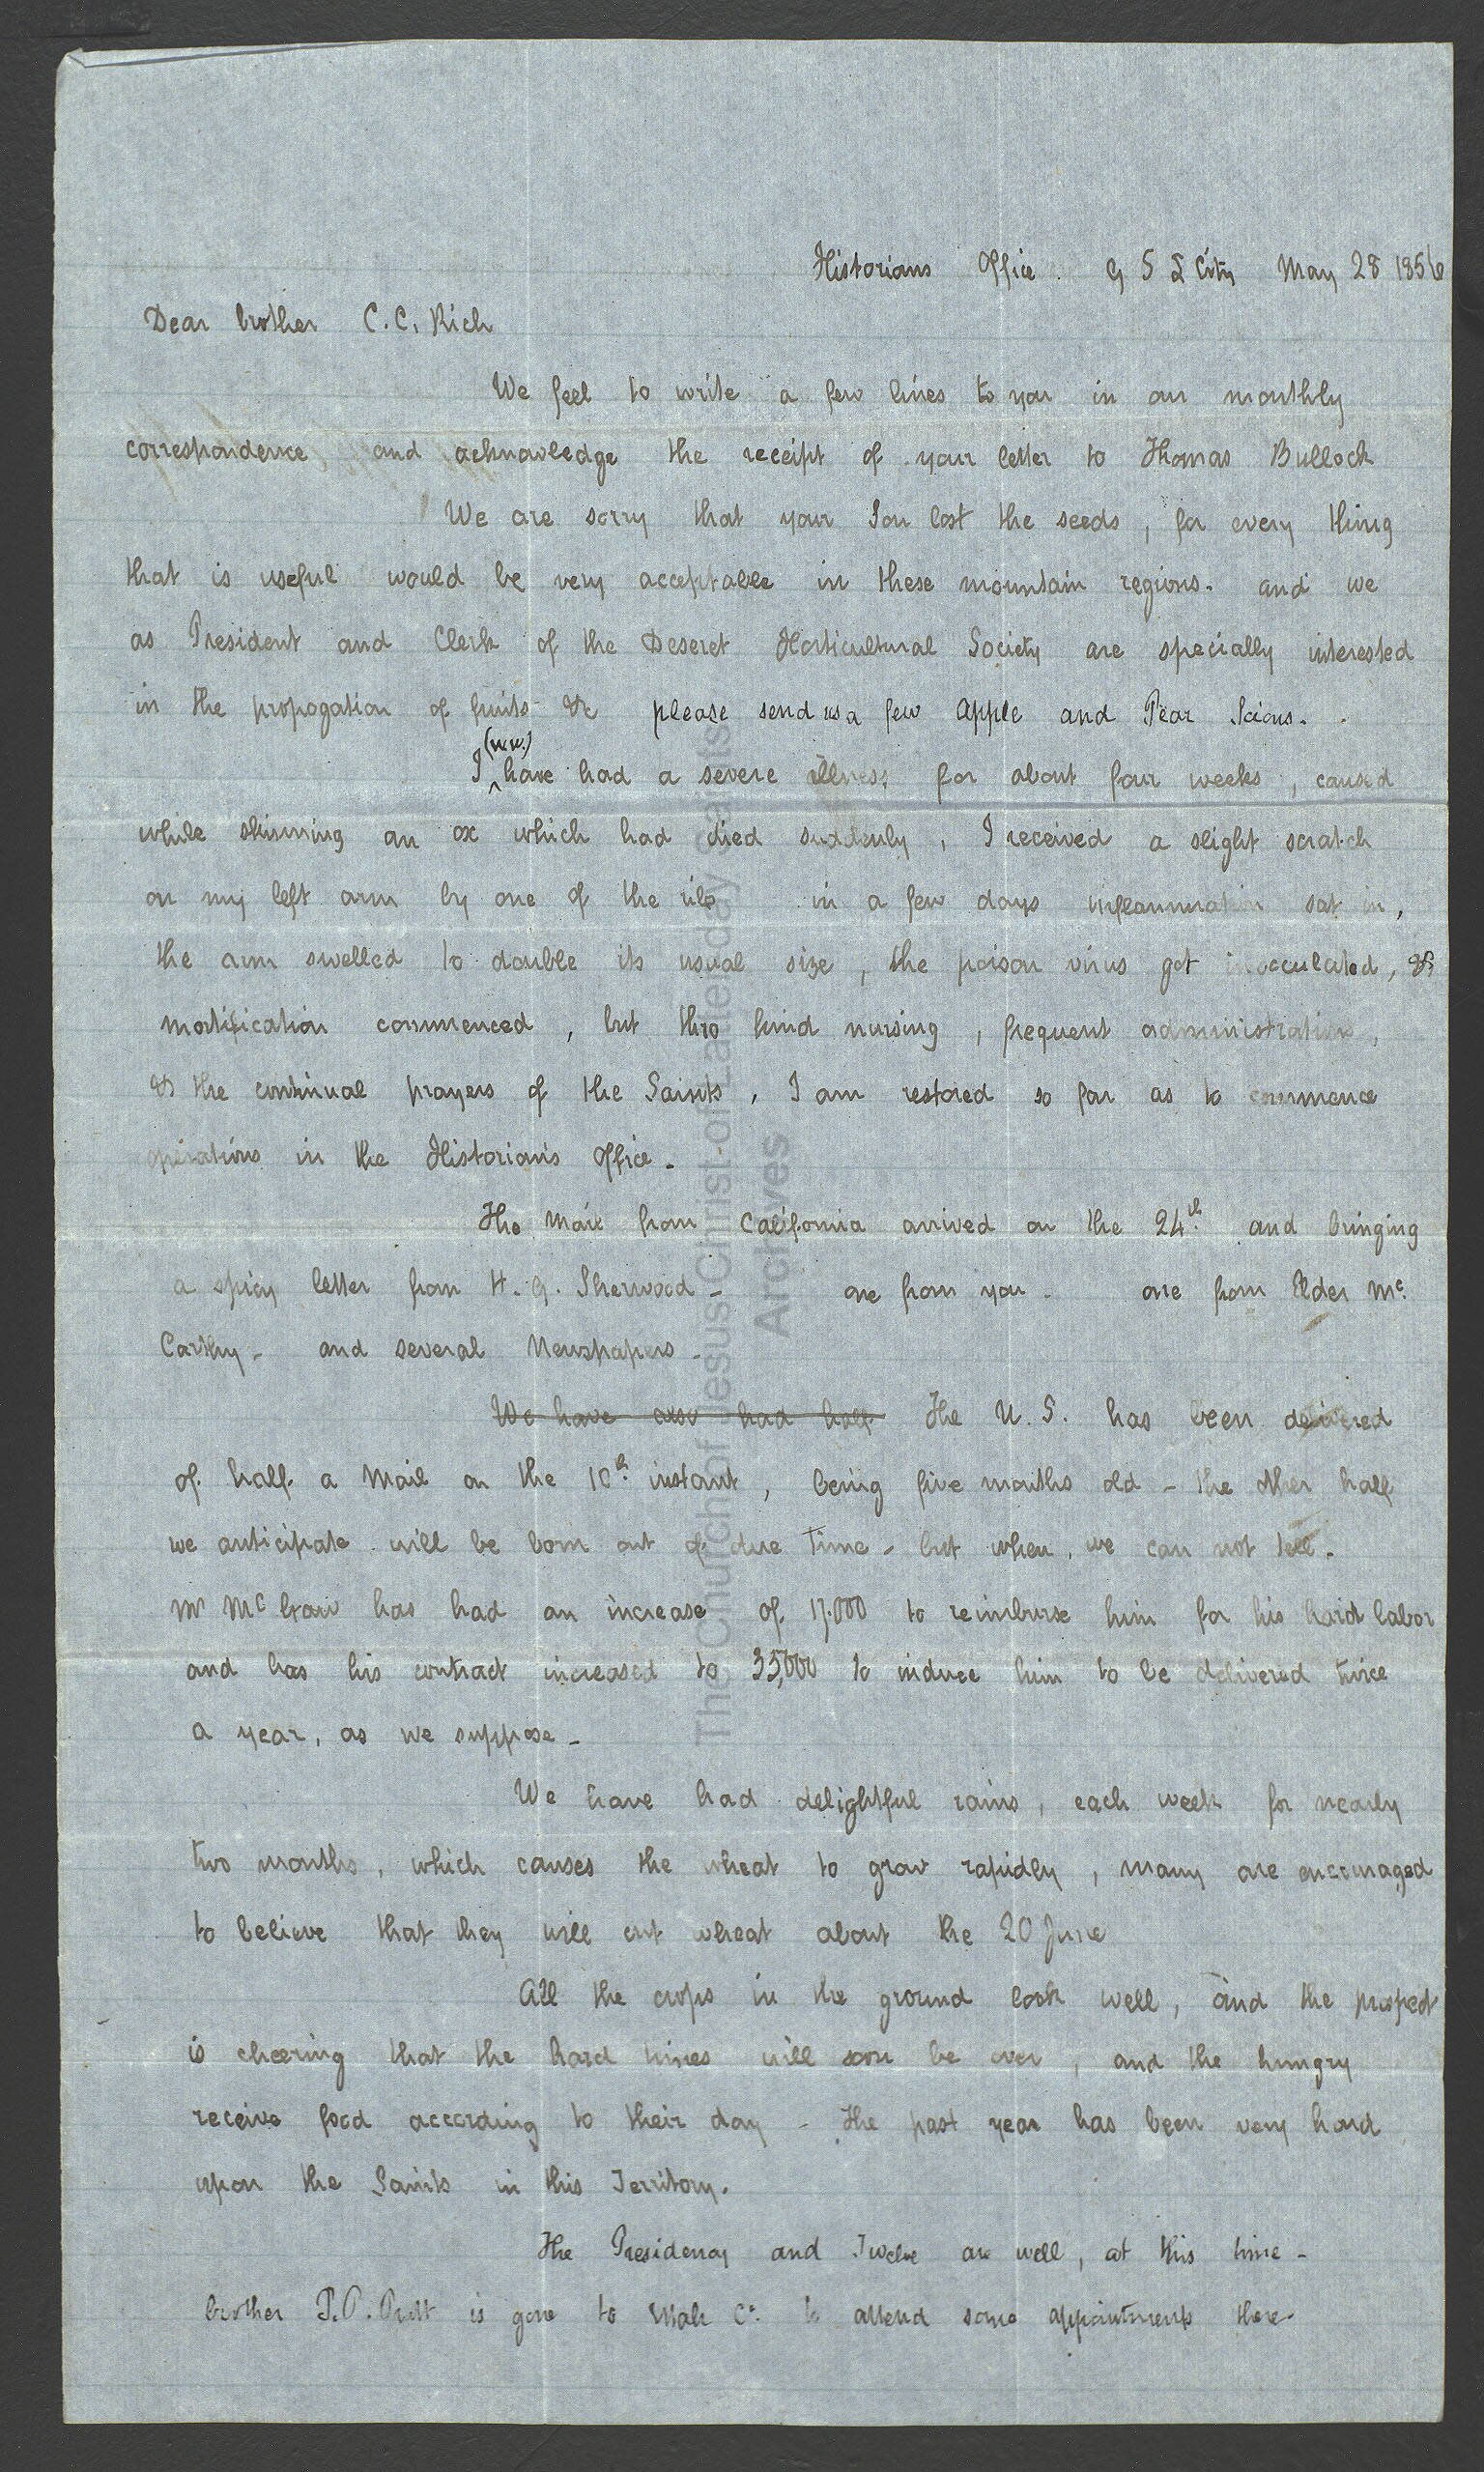 Historians Office. G S L City May 28 1856
Dear brother C. C. Rich
We feel to write a few lines to you in our monthly
correspondence, and acknowledge the receipt of your letter to Thomas Bullock
We are sorry that your Son lost the seeds, for every thing
that is useful would be very acceptable in these mountain regions. and we
as President and Clerk of the Deseret Horticultural Society are specially interested
in the propogation of fruits &c please send us a few Apple and Pear Scions.
(w.w.)
I ^ have had a severe illness for about four weeks, caused
while skinning an ox which had died suddenly, I received a slight scratch
on my left arm by one of the ribs in a few days inflammation sat in,
the arm swelled to double its usual size, the poison virus got inocculated, &
mortification commenced, but thro kind nursing, frequent administrations,
& the continual prayers of the Saints, I am restored so far as to commence
operations in the Historian's Office -
The Mail from California arrived on the 24th. and bringing
a spicy letter from H. G. Sherwood - one from you - one from Elder Mc.
Carthy - and several Newspapers -
We have also had half The U. S. has been delivered
of half a Mail on the 10th. instant, being five months old - the other half
we anticipate will be born out of due Time - but when, we can not tell.
Mr McGraw has had an increase of 17.000 to reimburse him for his hard labor
and has his contract increased to 35,000 to induce him to be delivered twice
a year, as we suppose -
We have had delightful rains, each week for nearly
two months, which causes the wheat to grow rapidly, many are encouraged
to believe that they will cut wheat about the 20 June
All the crops in the ground look well, and the prospect
is cheering that the hard times will soon be over, and the hungry
receive food according to their day - the past year has been very hard
upon the Saints in this Territory.
The Presidency and Twelve are well, at this time -
brother P. P. Pratt is gone to Utah Co. to attend some appointments there -
The Church of Jesus Christ of Latter-day Saints
Archives